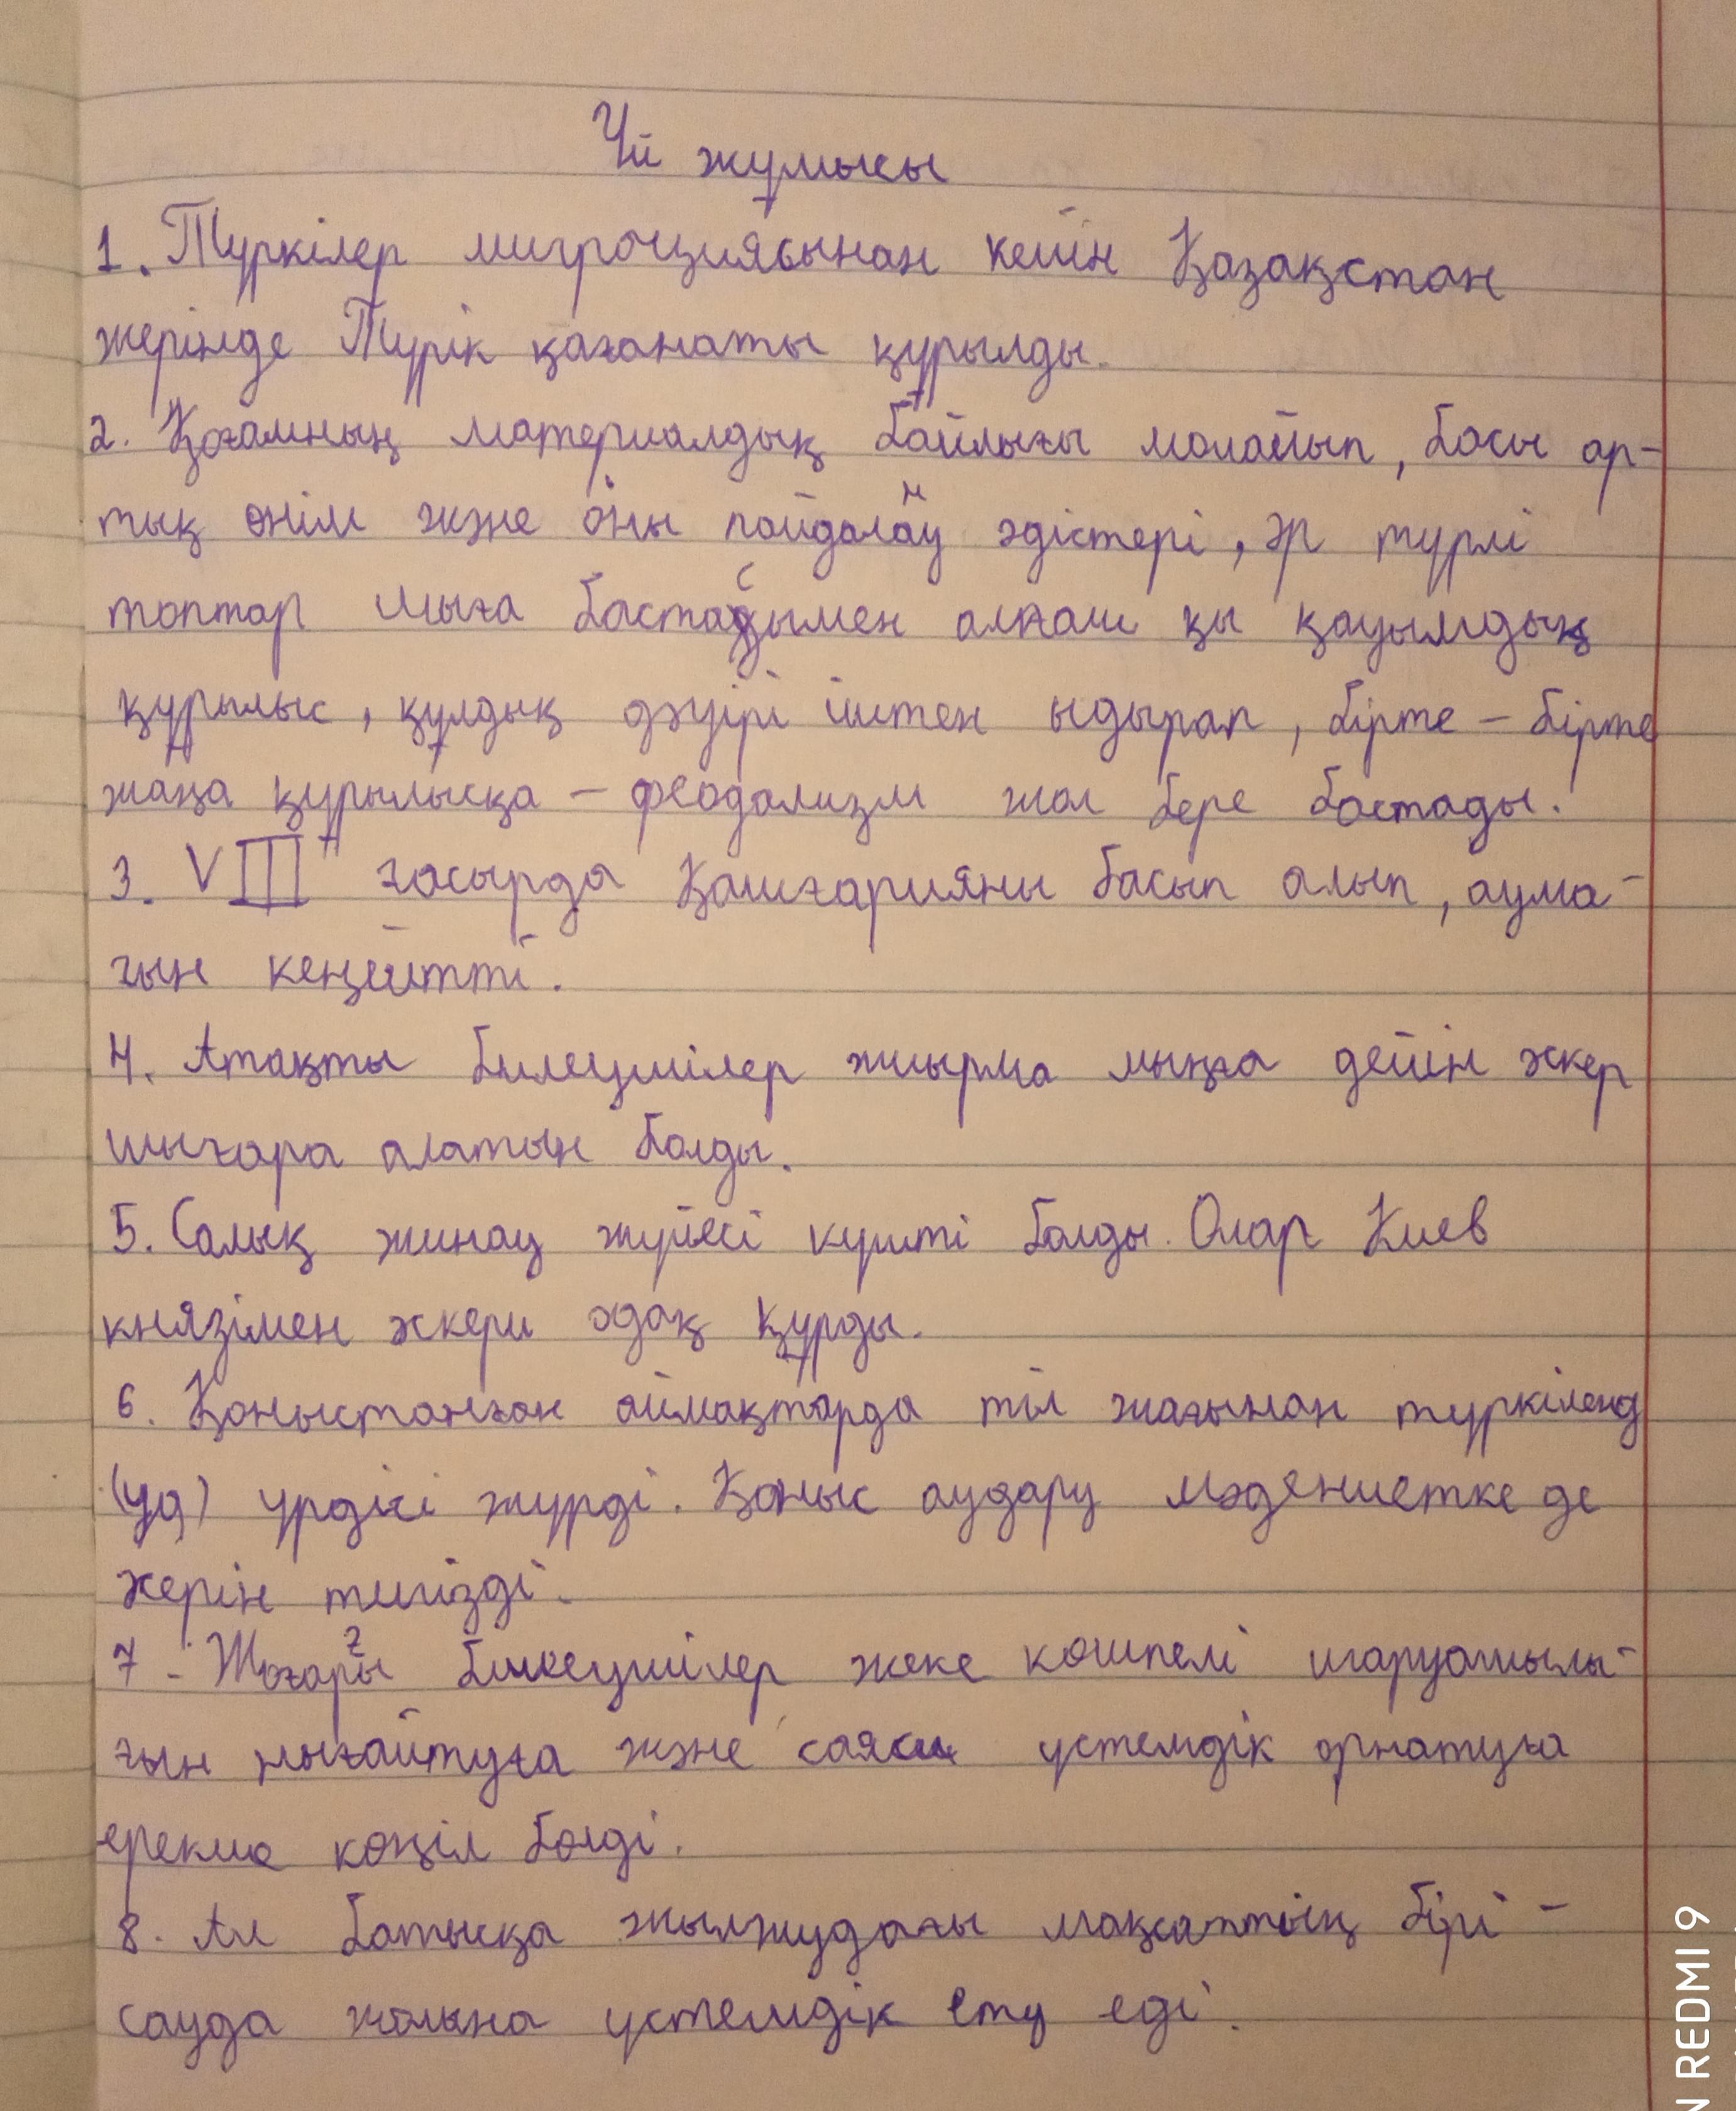 Үй жұмысы
1. Түркілер миграциясынан кейін Қазақстан
жерінде Түрік қағанаты құрылды.
2. Қоғамның материалдық байлығы молайып, басы ар-
тық өнім және оны пайдалану әдістері, әр түрлі
топтар шыға бастасымен алғаш қы қауымдық
құрылыс, құлдық дәуірі іштен ыдырап, бірте - бірте
жаңа құрылысқа - феодализм жол бере бастады.
3. VIII ғасырда Қашғарияны басып алып, аума-
ғын кеңейтті.
4. Атақты билеушілер жиырма мыңға дейін әскер
шығара алатын болды.
5. Салық жинау жүйесі күшті болды. Олар Киев
князімен әскери одақ құрды.
6. Қоныстанған аймақтарда тіл жағынан түркіленд
(уд) үрдісі жүрді. Қоныс аудару мәдениетке де
әсерін тигізді.
7. Жоғары билеушілер жеке көшпелі шаруашылы-
ғын нығайтуға және саяси үстемдік орнатуға
ерекше көңіл бөлді.
8. Ал батысқа жылжудағы мақсаттың бірі -
сауда жолына үстемдік ету еді.
N REDMI 9